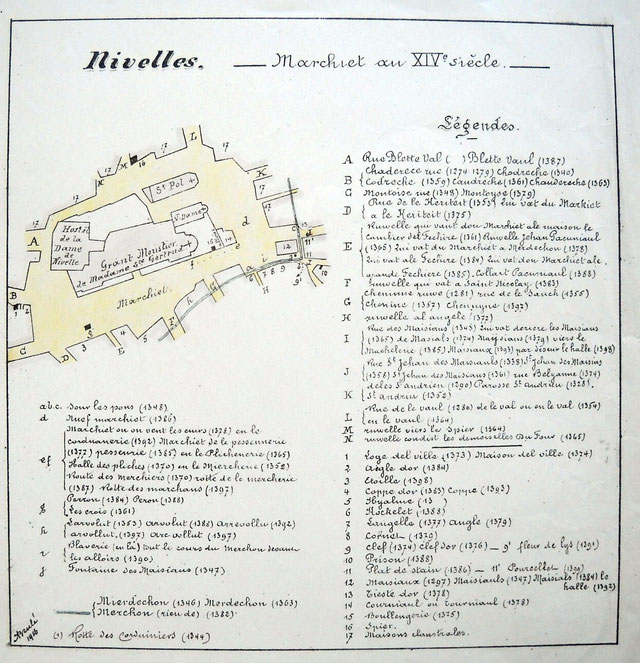 Nivelles.
Marchiet au XIVe siècle.
Légendes.
A Rue Blotte Val ( ) Blette Vaul (1387)
Chaderece ruwe (1274 1279) Chodreche (1340)
B Codreche (1359) Caudreche (1361) Chaudereche (1363)
C Montoise rue (1348) Montoyse (1379)
D Rue de la Heriteit (1353) Ki vat du Markiet
a le Heriteit (1375)
Ruwelle qui vaut dou Marchiet ale maison le
E (1365) Ki vat du Marchiet a Madrechon (1378)
Ki vat ale Fechire (1384) Ki vat dou Marchiet ale
grande Fechiere (1385). Collart Pacuniaul (1388)
F Ruwelle qui vat a Saint Nicolay (1383)
G Chenimme ruwe (1281) rue de le Sauch (1355)
Chenine (1357) Chenuyne (1397)
H ruwelle al angele (1377)
Rue des Maisiaus (1343) Ki vat deriere les Maisiaus
I (1365) de Masials (1374) Maysiaus (1379) viers le
J
K St Andriu (1352)
L Rue de le vaul (1286) de le val ou en le val (1354)
en le vaul (1364)
M ruwelle viers le Spier (1364)
N ruwelle condist les demoiselles Du Four (1365)
1 Loge del ville (1373) Maison del ville (1374)
2 Angle dor (1384)
3 Etoille (1398)
4 Coppe dor (1383) Coppe (1393)
5 Ihyalme (13 )
6 Hockelet (1388)
7 Langelle (1377) Angle (1379)
8 Cornet (1379)
9 Clef (1374) Clef dor (1376) — 9' fleur de lys (1391)
10 Prison (1388)
11 Plat de stain (1386) — 11' Pourcellet (1390)
12 Maisiaux (1297) Maisiauls (1347) Maisials (1384) le
halle (1392)
13 Tieste dor (1378)
14 Tourniaul ou Torniaul (1378)
15 Boullengerie (1375)
16 Spier.
17 Maisons claustrales.
a.b.c. Sour les pons (1348)
d Nuef marchiet (1386)
Marchiet ou on vent les curs (1378) en le
corduanerie (1392) Marchiet de le pessennerie
(1377) pessenrie (1385) en le Plichenerie (1365)
ef Halle des pliches (1370) en le Miercherie (1352)
Route des merchiers (1370) rotte de le mercherie
(1387) Rotte des marchans (1397)
Perron (1384) Peron (1388)
g Les crois (1361)
h Larvolut (1353) Arvolut (1388) Arrevollu (1392)
arvollut, (1397) Arc vollut (1397)
i Blaverie (en le) tout le cours du Merchon devant
les alloirs (1390)
j Fontaine des Maisiaus (1347)
Mierdechon (1346) Merdechon (1363)
Merchon (rieu de) (1382)
(o) Rotte des corduiniers (1344)
1916
Hostel
de la
Dame
de
Nivelle
Grant Moustier
de Madame Ste Gertrud
St Pol
N. Dame
Marchiet